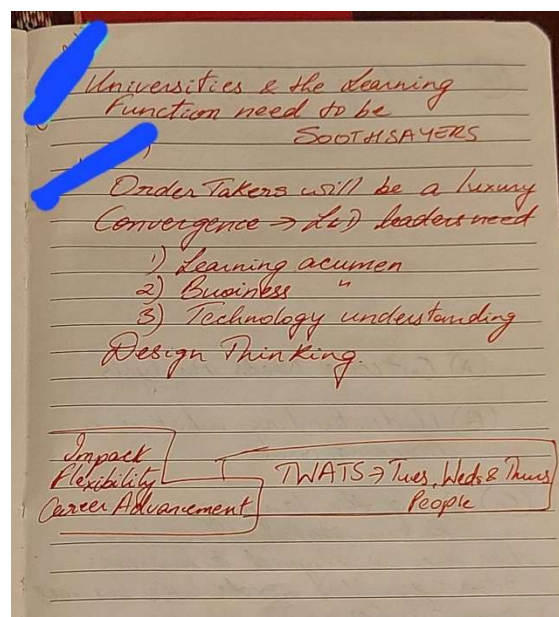 Universities & the Learning
Function need to be
SOOTHSAYERS
Order Takers will be a luxury
Convergence → L&D leaders need
1) Learning acumen
2) Business "
3) Technology understanding
Design Thinking.
Impact
Flexibility
Career Advancement
TWATS → Tues, Weds & Thurs
People